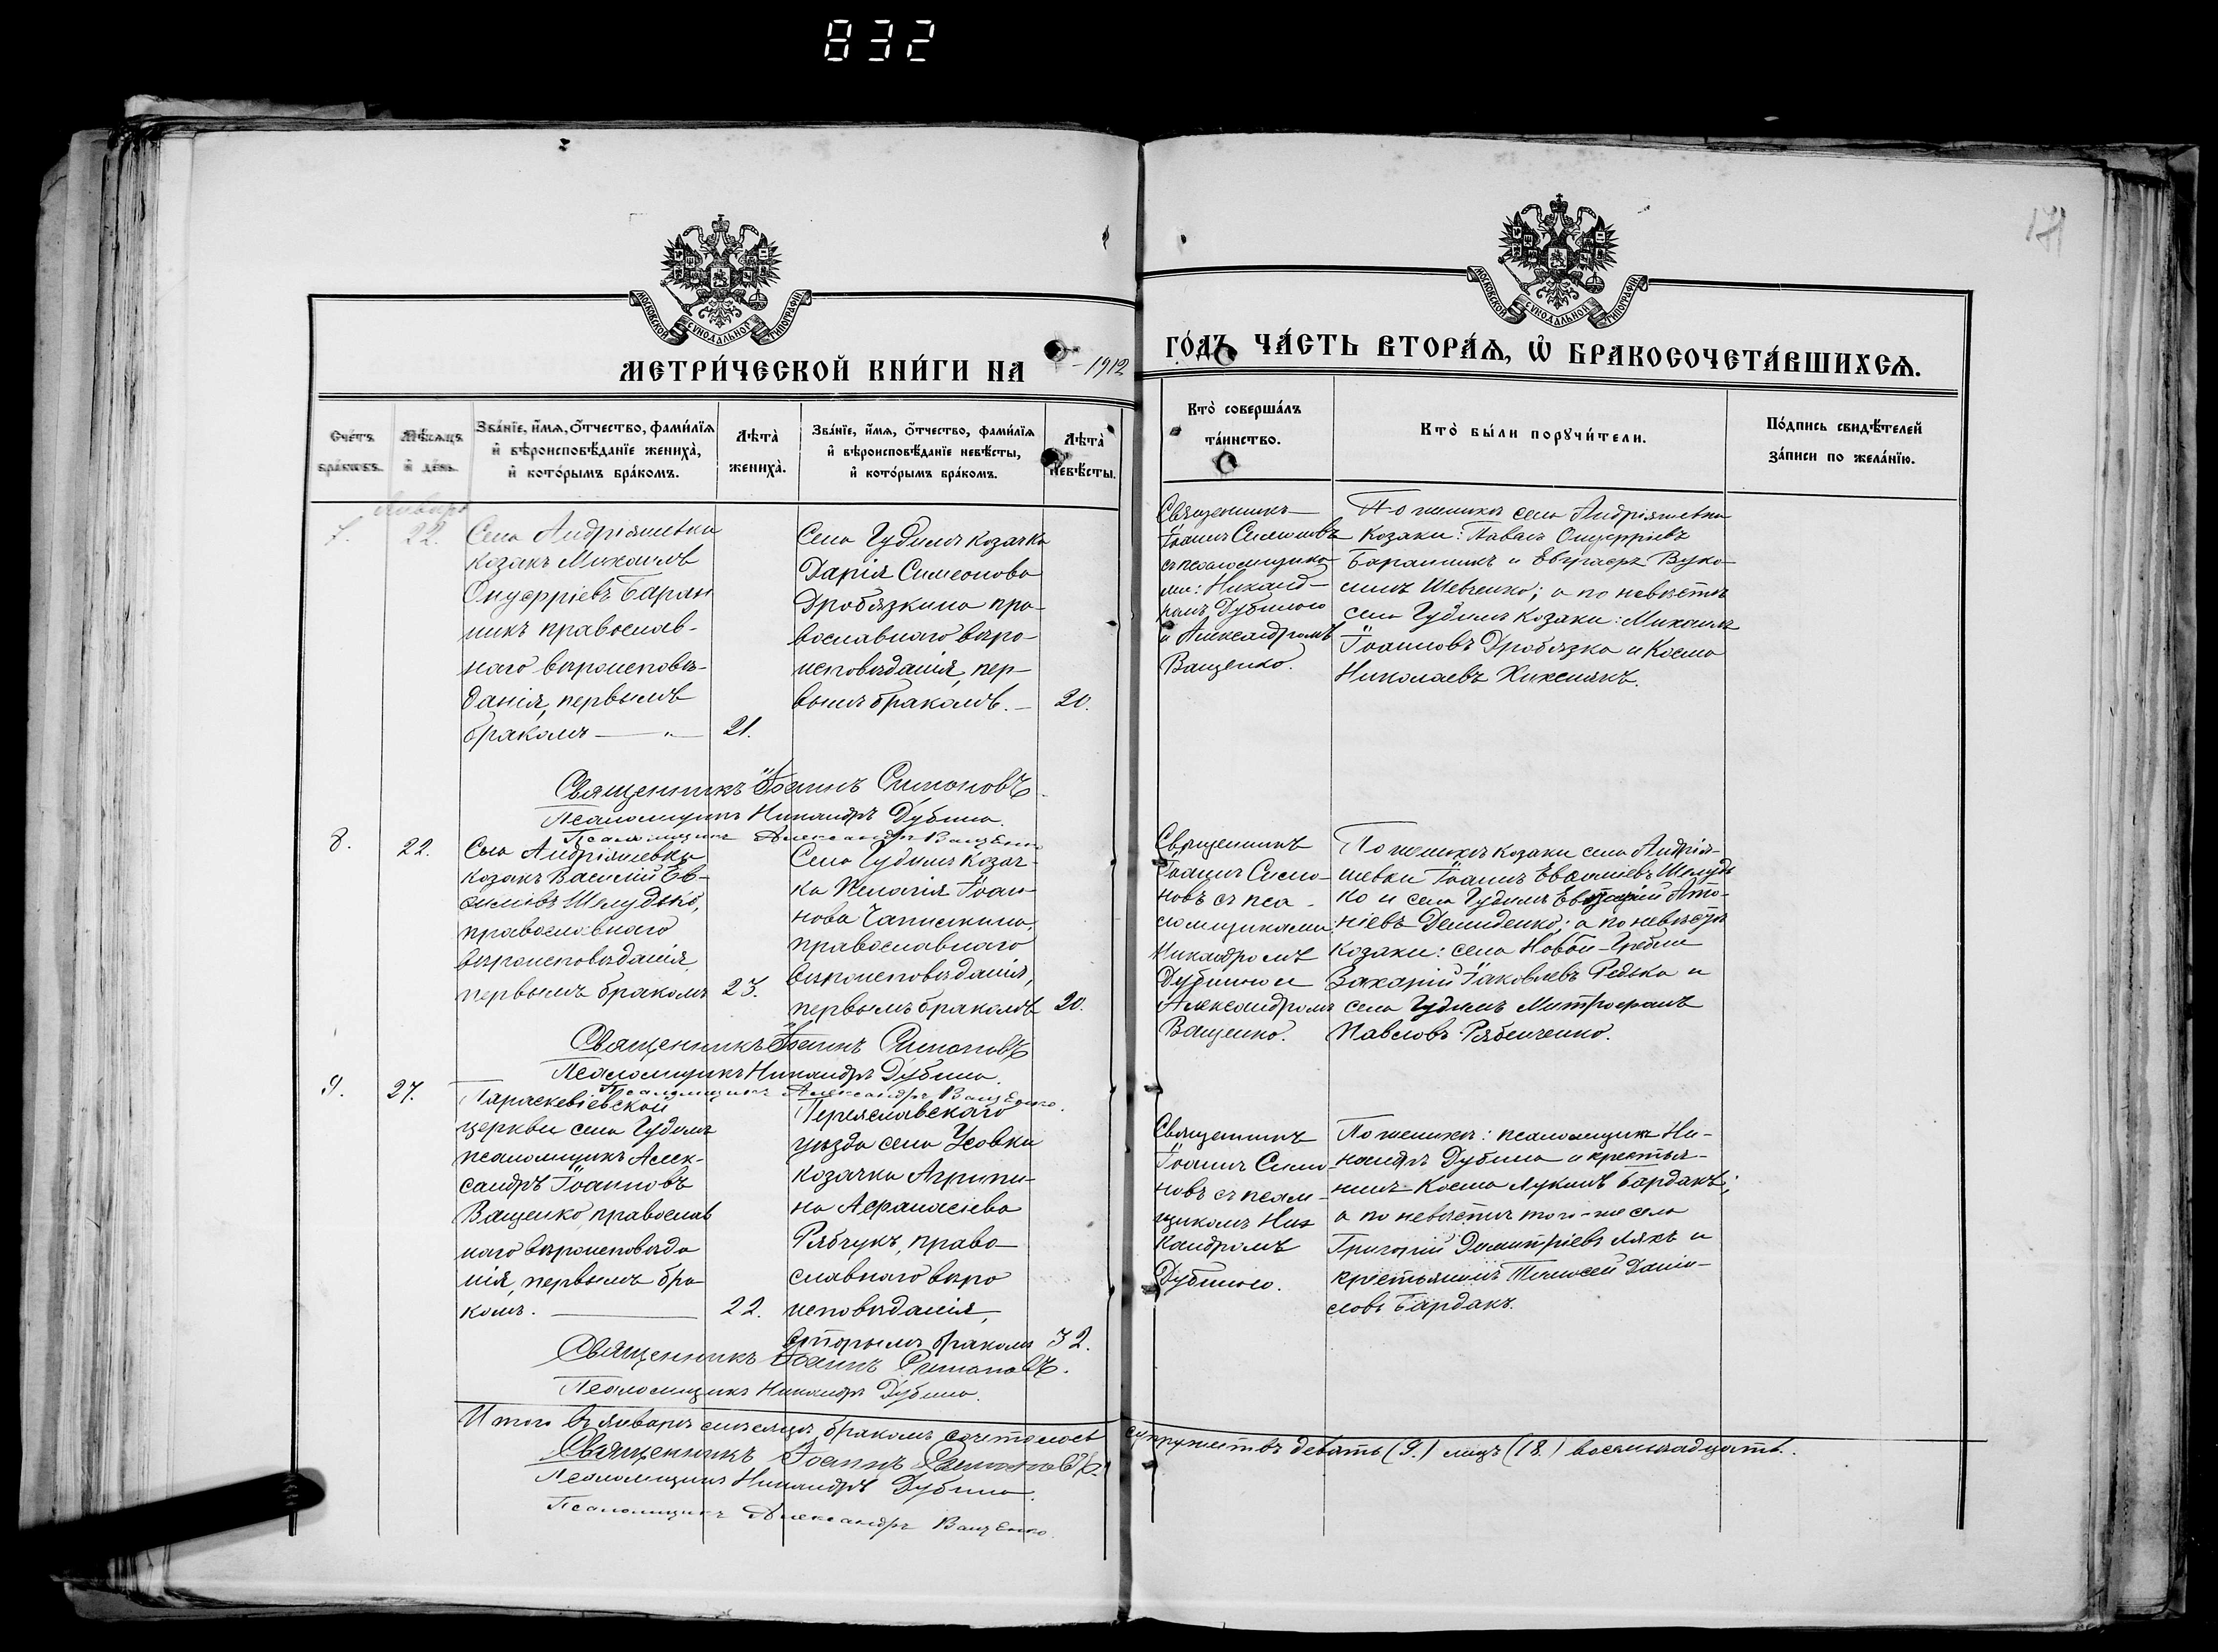 832
171
МОСКОВСКОЙ СѴНОДАЛЬНОЙ ТИПОГРАФІИ
МОСКОВСКОЙ СѴНОДАЛЬНОЙ ТИПОГРАФІИ
МЕТРИ́ЧЕСКОЙ КНИ́ГИ НА 1912 ГО́ДЪ ЧА́СТЬ ВТОРА́Ѧ, Ѽ БРАКОСОЧЕТА́ВШИХСѦ.
Счетъ
браковъ.
Мѣсяцъ
и день.
Зва́нїе, и́мѧ, ѻ́тчество, фами́лїѧ
и҆ вѣроисповѣ́данїе жениха̀,
и҆ кото́рымъ бра́комъ.
Лѣта̀
жениха̀.
Зва́нїе, и́мѧ, ѻ́тчество, фами́лїѧ
и҆ вѣроисповѣ́данїе невѣ́сты,
и҆ кото́рымъ бра́комъ.
Лѣта̀
невѣ́сты.
Кто̀ соверша́лъ
та́инство.
Кто̀ бы́ли порꙋчи́тели.
По́дпись свидѣ́телей
за́писи по жела́нїю.
Январь
7.
22.
Села Андріяшевки
козакъ Михаилъ
Онуфріевъ Баран
никъ православ-
наго вѣроисповѣ-
данія, первымъ
бракомъ — „ —
21.
Села Гудимъ козачка
Дарія Симеонова
Дробязкина пра-
вославнаго вѣро-
исповѣданія, пер-
вымъ бракомъ. —
20.
Священникъ
Іоаннъ Симоновъ
съ псаломщика-
ми: Никанд-
ромъ Дубиною
и Александромъ
Ващенко.
По женихѣ села Андріяшевки
козаки: Павелъ Онуфріевъ
Баранникъ и Евграфъ Вуко-
ловъ Шевченко; а по невѣстѣ
села Гудимъ козаки: Михаилъ
Іоанновъ Дробязка и Косма
Николаевъ Хижнякъ.
Священникъ Іоаннъ Симоновъ
Псаломщикъ Никандръ Дубина.
Псаломщикъ Александръ Ващенко
8.
22.
Села Андріяшевки
козакъ Василій Ев-
фиміевъ Шелудько,
православнаго
вѣроисповѣданія
первымъ бракомъ
23.
Села Гудимъ козач-
ка Пелагія Іоан-
нова Чапискина,
православнаго
вѣроисповѣданія,
первымъ бракомъ
20.
Священникъ
Іоаннъ Симо-
новъ съ пса-
ломщиками:
Никандромъ
Дубиною и
Александромъ
Ващенко.
По женихѣ козаки села Андрія-
шевки Іоаннъ Евфиміевъ Шелудь
ко и села Гудимъ Анто-
ніевъ Демиденко; а по невѣстѣ
козаки: села Новой-Гребли
Захарій Іаковлевъ Редька и
села Гудимъ Митрофанъ
Павловъ Рябенченко.
Священникъ Іоаннъ Симоновъ
Псаломщикъ Никандръ Дубина.
Псаломщикъ Александръ Ващенко.
9.
27.
Параскевіевской
церкви села Гудимъ
псаломщикъ Алек-
сандръ Іоанновъ
Ващенко, православ
наго вѣроисповѣда
нія, первымъ бра-
комъ.
22.
Переяславскаго
уѣзда села Усовки
козачка Агрипи-
на Афанасіева
Рябчукъ, право-
славнаго вѣро
исповѣданія,
вторымъ бракомъ
32.
Священникъ
Іоаннъ Симо-
новъ съ псалом-
щикомъ Ни-
кандромъ
Дубиною.
По женихѣ: псаломщикъ Ни-
кандръ Дубина и крестья-
нинъ Косма Лукинъ Бардакъ;
а по невѣстѣ того-же села
Григорій Димитріевъ Лякъ и
крестьянинъ Тимофей Дани-
ловъ Бардакъ.
Священникъ Іоаннъ Симоновъ.
Псаломщикъ Никандръ Дубина.
Итого въ январѣ мѣсяцѣ бракомъ сочеталось супружествъ девять (9.) лицъ (18.) восемнадцать.
Священникъ Іоаннъ Симоновъ.
Псаломщикъ Никандръ Дубина.
Псаломщикъ Александръ Ващенко.